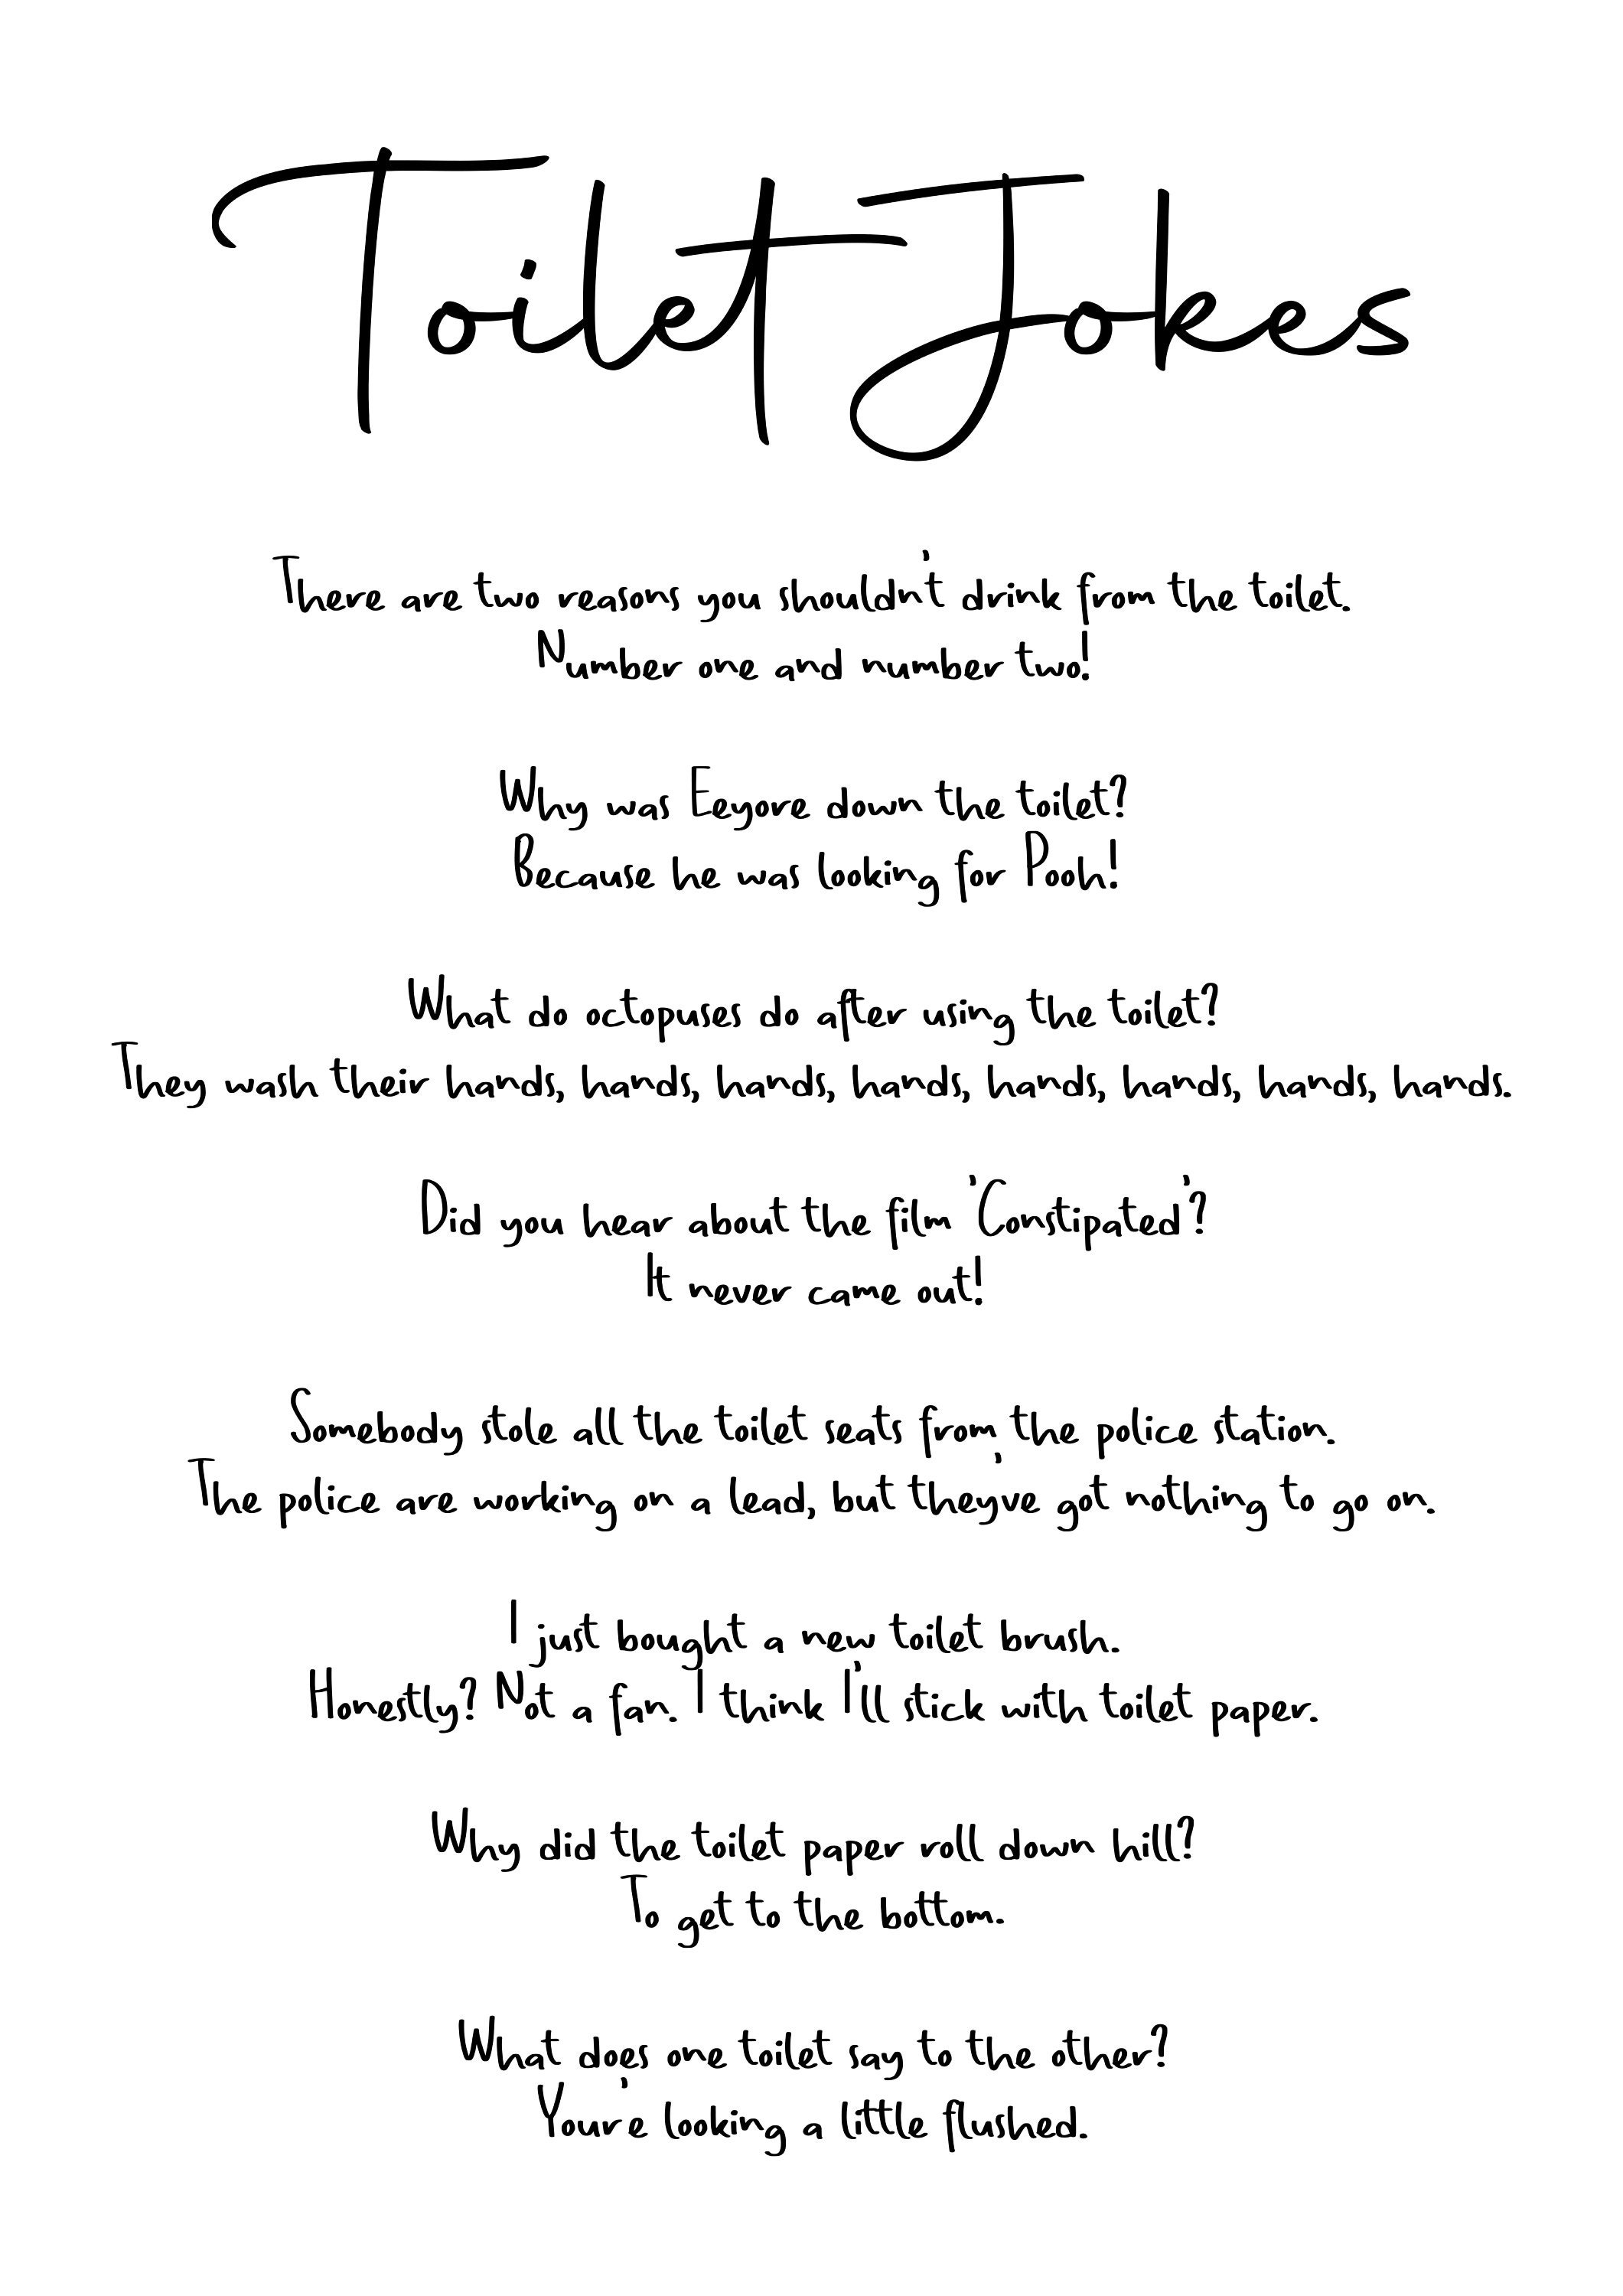 Toilet Jokes
There are two reasons you shouldn't drink from the toilet.
Number one and number two!
Why was Eeyore down the toilet?
Because he was looking for Pooh!
What do octopuses do after using the toilet?
They wash their hands, hands, hands, hands, hands, hands, hands, hands.
Did you hear about the film 'Constipated'?
It never came out!
Somebody stole all the toilet seats from the police station.
The police are working on a lead, but they've got nothing to go on.
I just bought a new toilet brush.
Honestly? Not a fan. I think I'll stick with toilet paper.
Why did the toilet paper roll down hill?
To get to the bottom.
What does one toilet say to the other?
Your'e looking a little flushed.